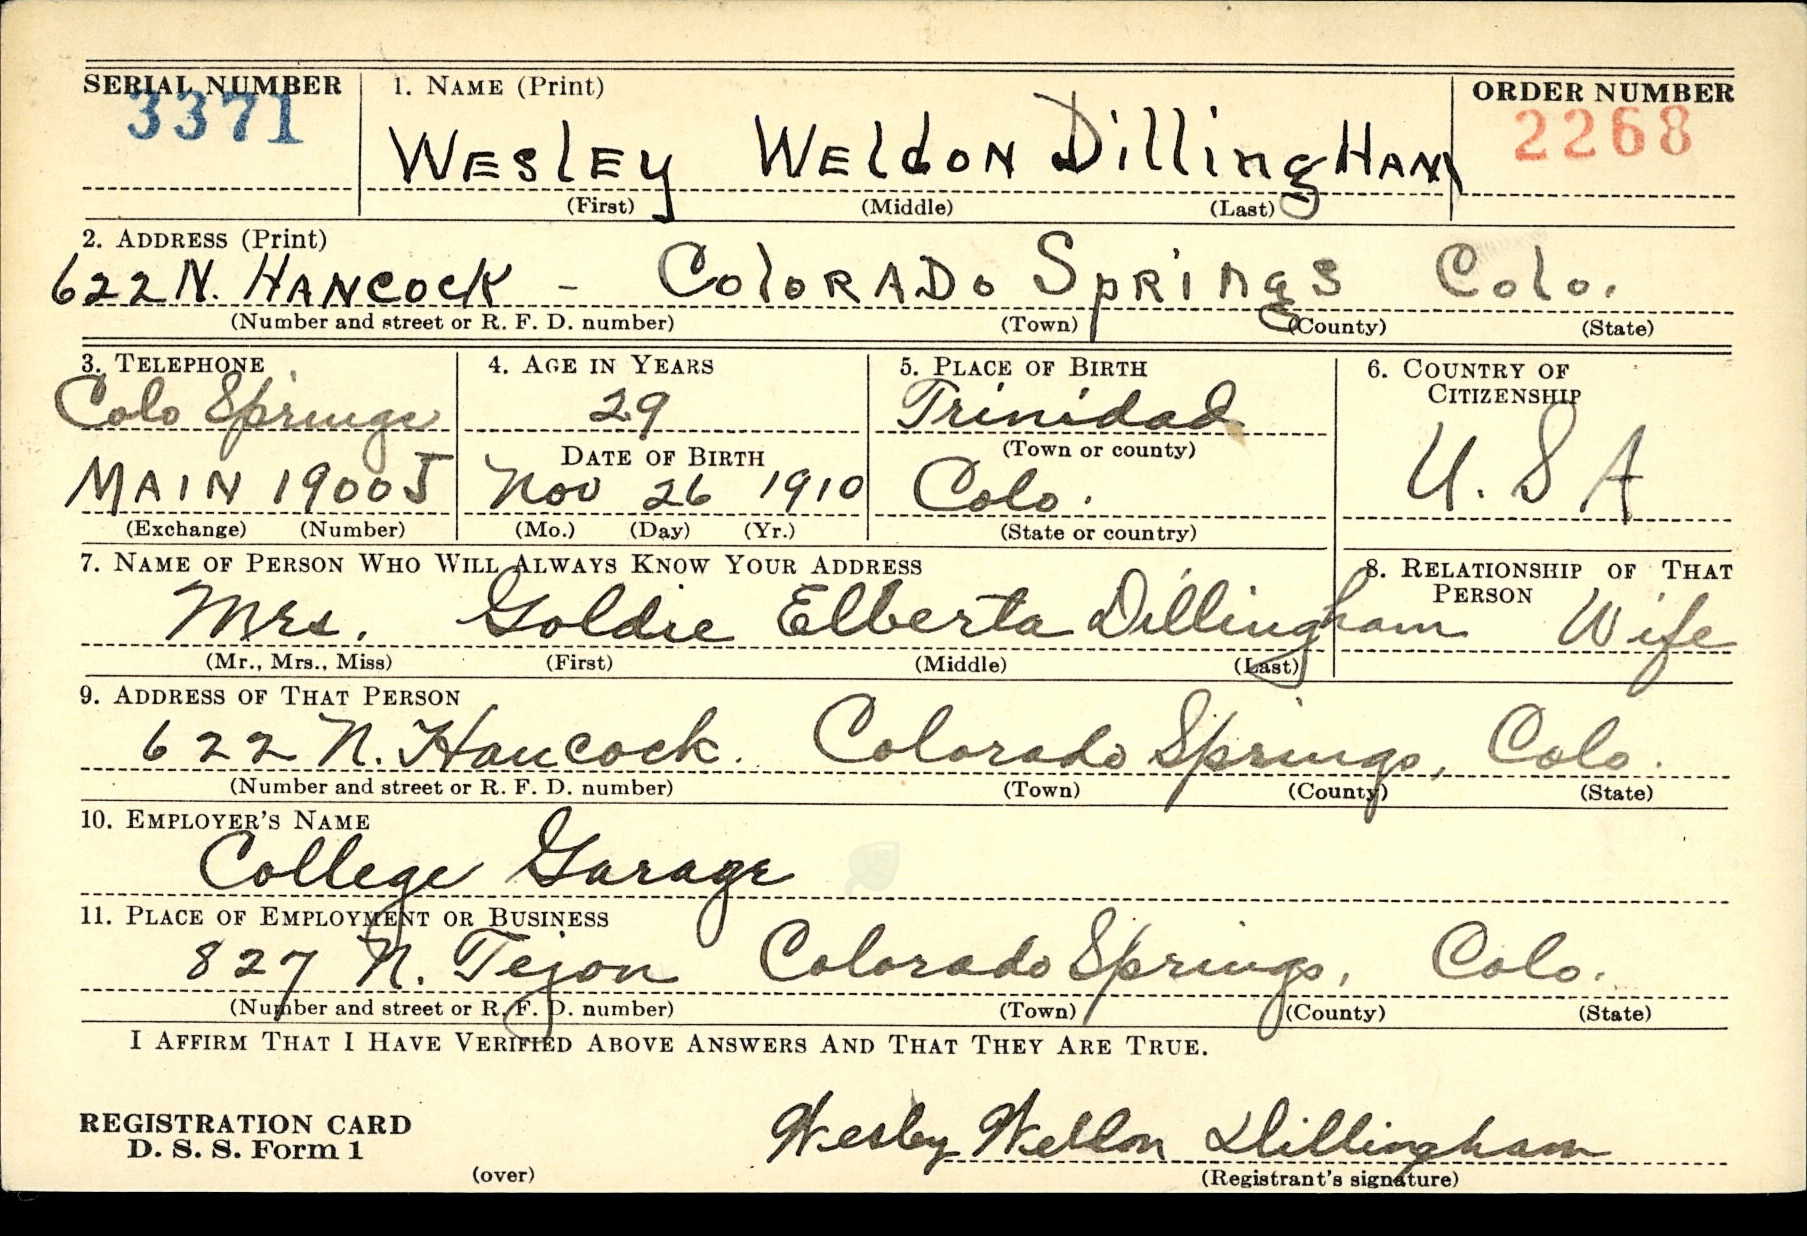 SERIAL NUMBER 1. NAME (Print) ORDER NUMBER
3371 WESlEy WEldON DillingHAM 2268
(First) (Middle) (Last)
2. ADDRESS (Print)
622 N. HANCOCK - COlORADO SpRiNgS Colo.
(Number and street or R. F. D. number) (Town) (County) (State)
3. TELEPHONE 4. AGE IN YEARS 5. PLACE OF BIRTH 6. COUNTRY OF
CITIZENSHIP
Colo Springs 29 Trinidad
DATE OF BIRTH (Town or county)
MAIN 1900J Nov 26 1910 Colo. U. S A
(Exchange) (Number) (Mo.) (Day) (Yr.) (State or country)
7. NAME OF PERSON WHO WILL ALWAYS KNOW YOUR ADDRESS 8. RELATIONSHIP OF THAT
PERSON
Mrs. Goldie Elberta Dillingham Wife
(Mr., Mrs., Miss) (First) (Middle) (Last)
9. ADDRESS OF THAT PERSON
622 N. Hancock. Colorado Springs, Colo.
(Number and street or R. F. D. number) (Town) (County) (State)
10. EMPLOYER'S NAME
College Garage
11. PLACE OF EMPLOYMENT OR BUSINESS
827 N. Tejon Colorado Springs, Colo.
(Number and street or R. F. D. number) (Town) (County) (State)
I AFFIRM THAT I HAVE VERIFIED ABOVE ANSWERS AND THAT THEY ARE TRUE.
REGISTRATION CARD
D. S. S. Form 1
Wesley Weldon Dillingham
(over) (Registrant's signature)